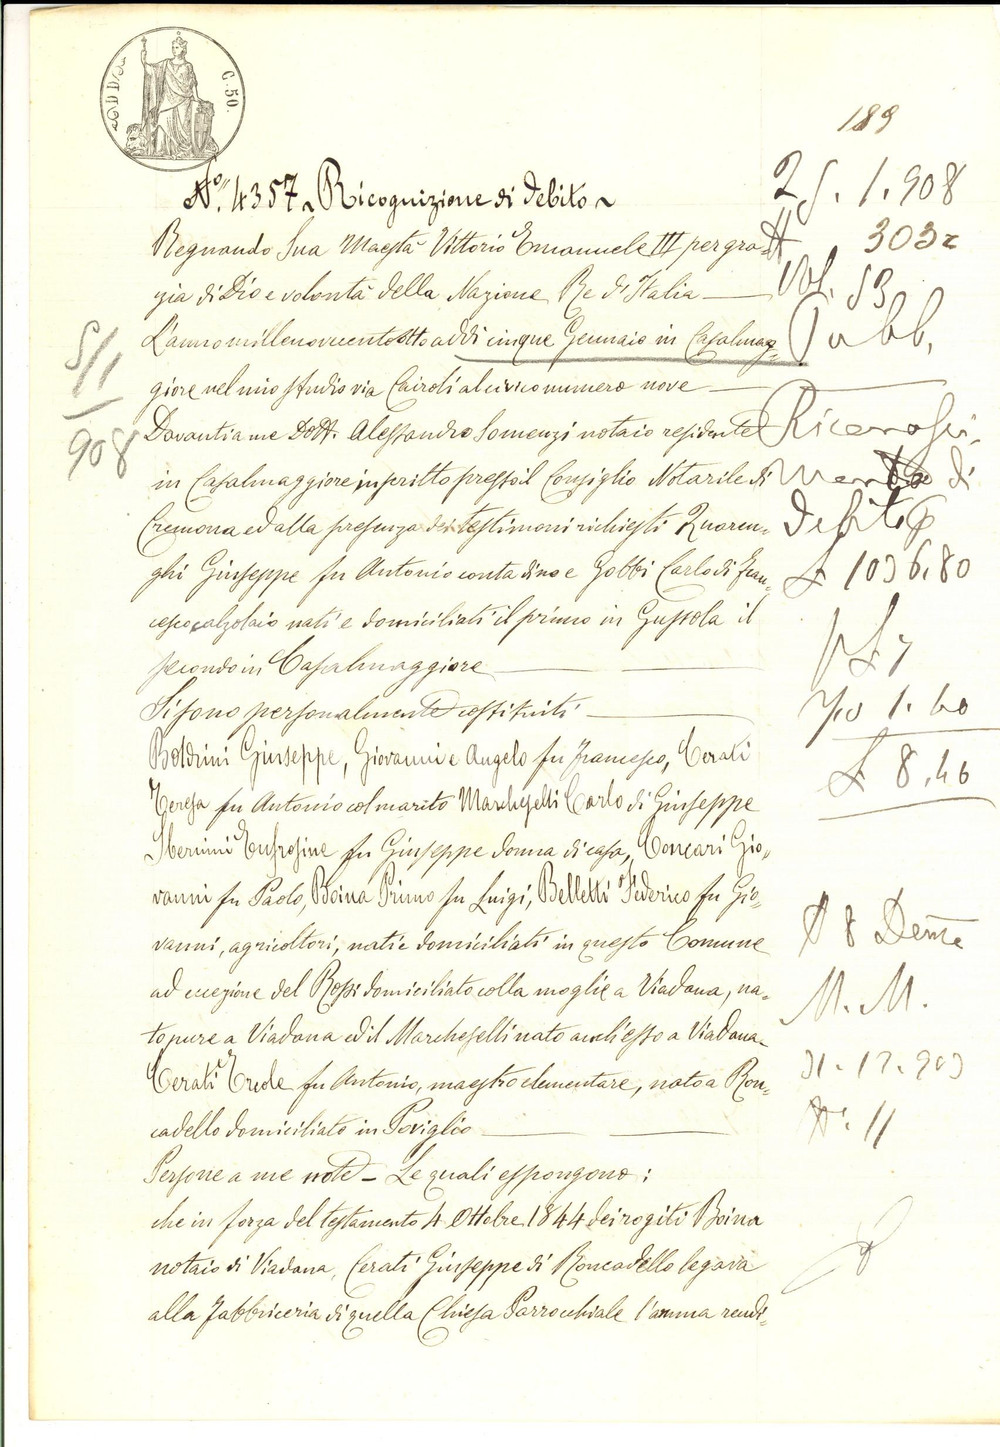 C. 50.
189
N.° 4357 ~ Ricognizione di debito ~
Regnando Sua Maestà Vittorio Emanuele III per gra-
zia di Dio e volontà della Nazione Re d'Italia
L'anno millenovecentotto addì cinque Gennaio in Casalmag-
giore nel mio studio via Cairoli al civico numero nove
Davanti a me Dott. Alessandro Somenzi notaio residente
in Casalmaggiore inscritto presso il Consiglio Notarile di
Cremona ed alla presenza dei testimoni richiesti Quaren-
ghi Giuseppe fu Antonio contadino e Gobbi Carlo di Fran-
cesco calzolaio nati e domiciliati il primo in Gussola il
secondo in Casalmaggiore
Si sono personalmente costituiti
Boldrini Giuseppe, Giovanni e Angelo fu Francesco, Cerati
Teresa fu Antonio col marito Marcheselli Carlo di Giuseppe
Eufrosine fu Giuseppe donna di casa, Concari Gio-
vanni fu Paolo, Boina Primo fu Luigi, Belletti Federico fu Gio-
vanni, agricoltori, nati e domiciliati in questo Comune
ad eccezione del Rossi domiciliato colla moglie a Viadana, na-
to pure a Viadana ed il Marcheselli nato anch'esso a Viadana
Cerati Ercole fu Antonio, maestro elementare, nato a Ron-
cadello domiciliato in Poviglio
Persone a me note - Le quali espongono:
che in forza del testamento 4 Ottobre 1844 dei rogiti Boina
notaio di Viadana, Cerati Giuseppe di Roncadello legava
alla Fabbriceria di quella Chiesa Parrocchiale l'annua rendi-
5/1
908
25. 1. 908
N 3032
Vol. 53
Pubb.
Riconosci-
mento di
debito
£ 1036.80
1.60
£ 8,46
M. M.
31. 12. 903
N. 11